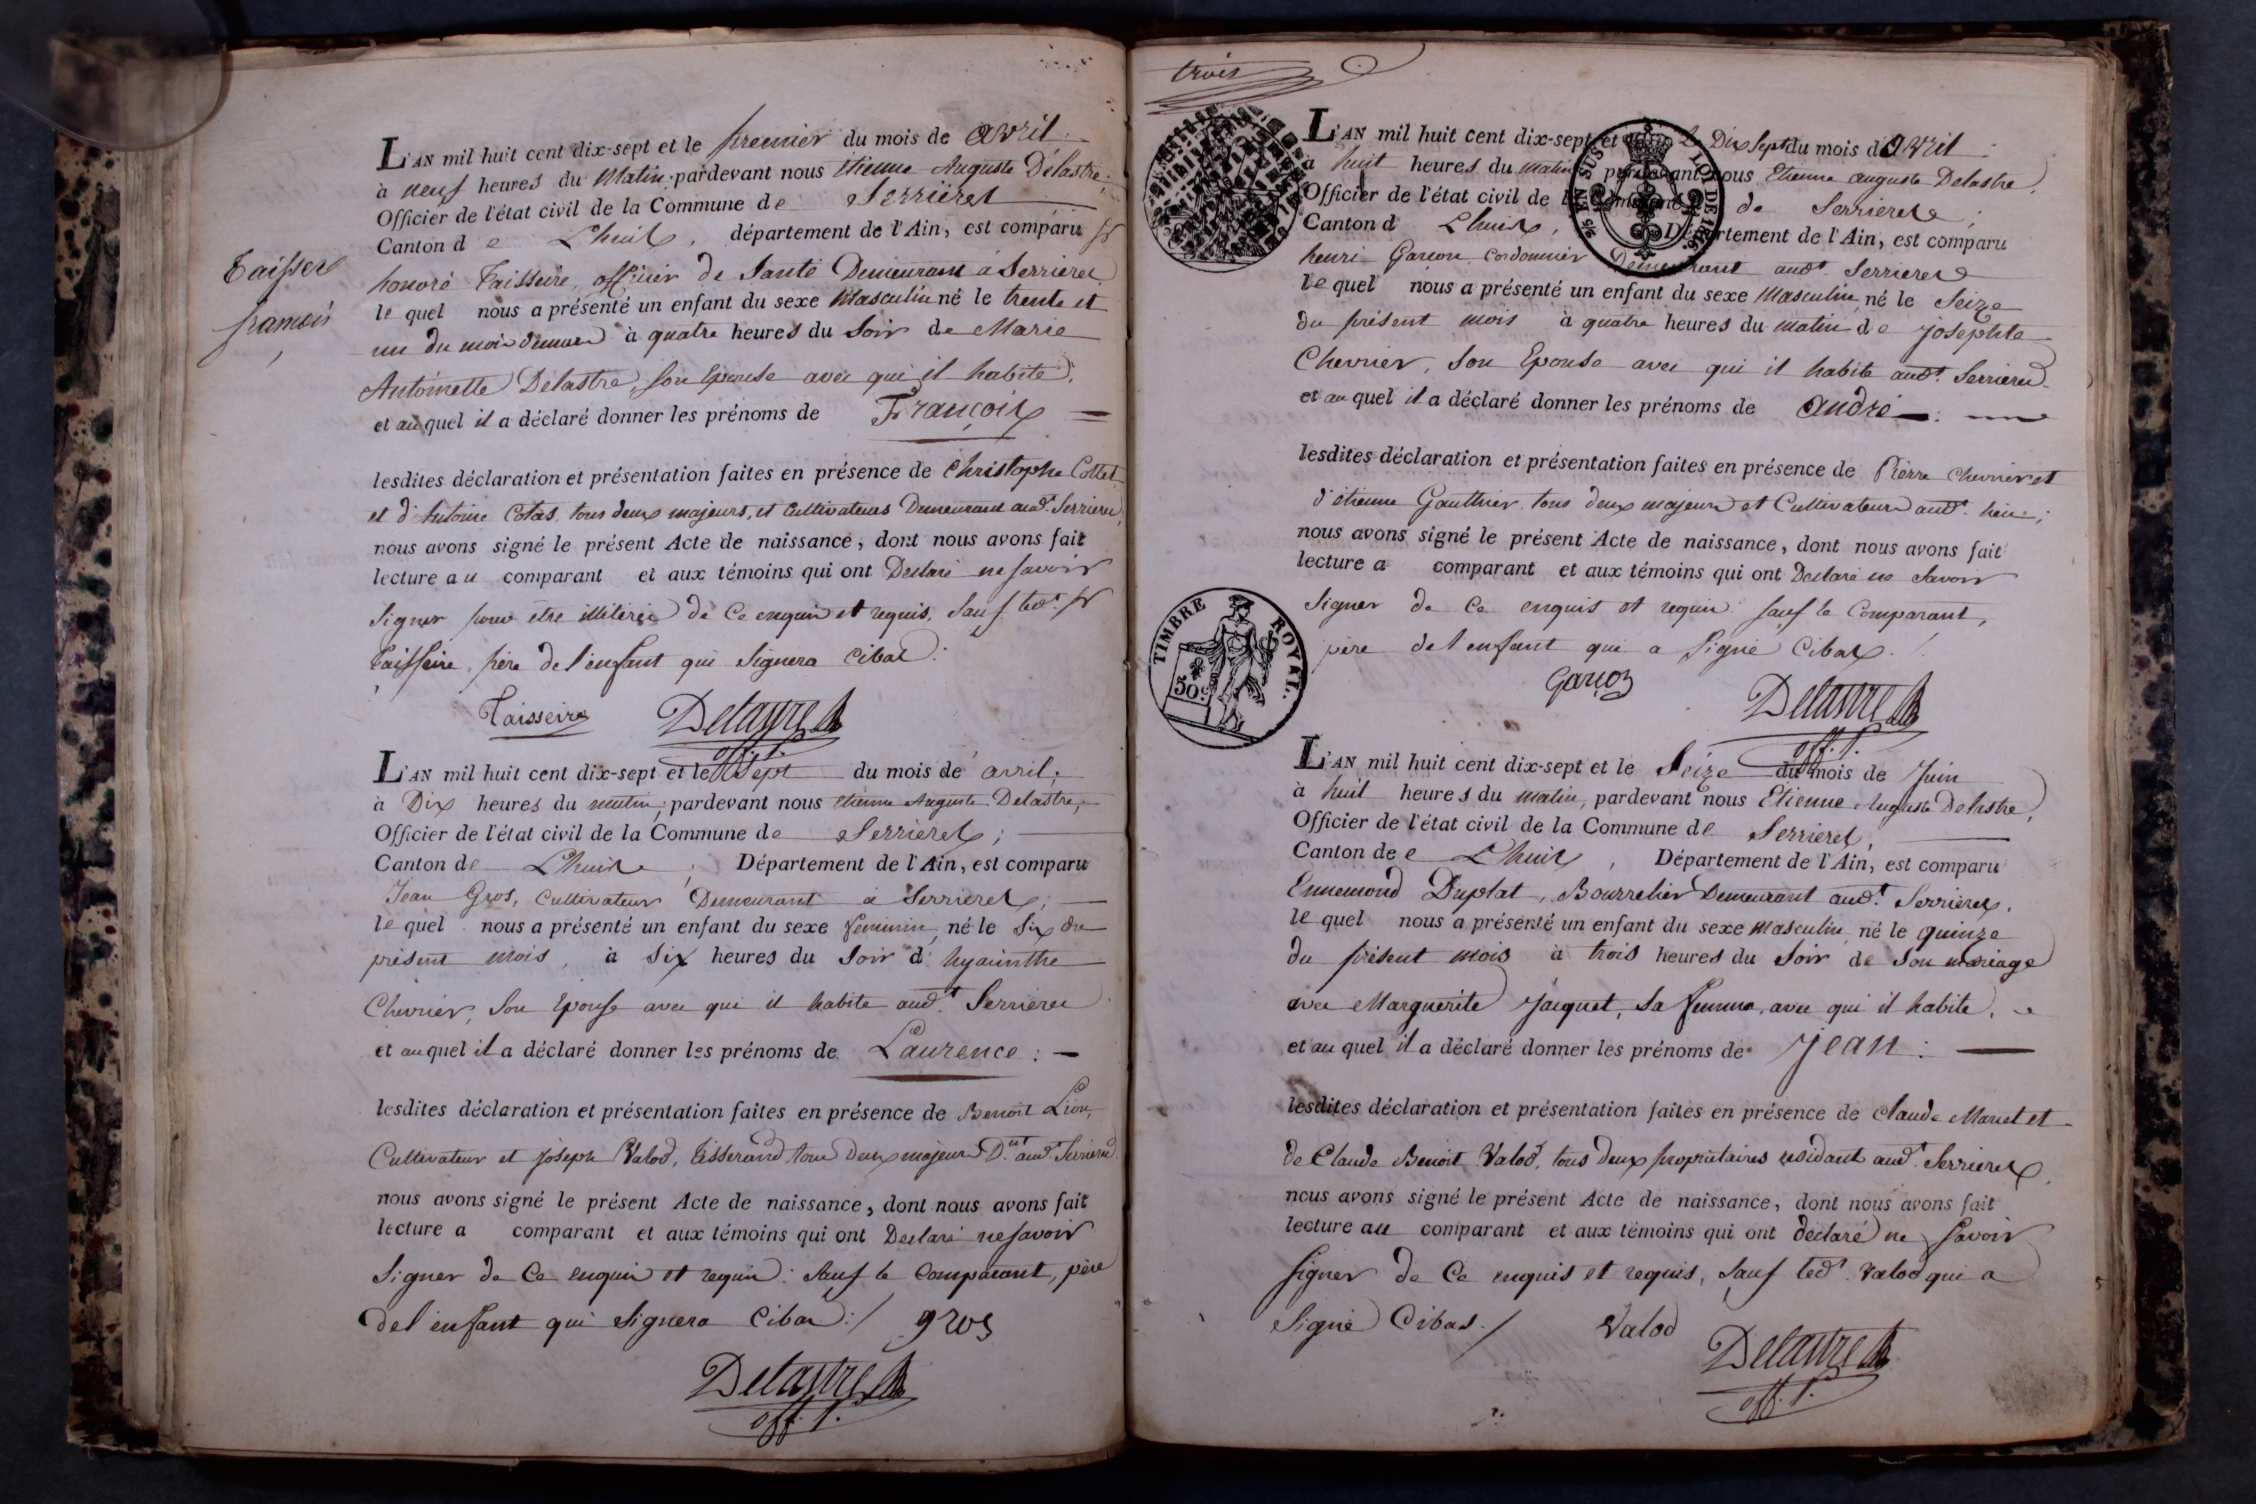 Taisseire
françois
L'AN mil huit cent dix-sept et le premier du mois de avril
à neuf heures du Matin pardevant nous Etienne Auguste Delastre,
Officier de l'état civil de la Commune de Serrieres
Canton de Lhuis, département de l'Ain, est comparu Sr
honoré Taisseire, officier de Santé Demeurant à Serrieres
le quel nous a présenté un enfant du sexe Masculin né le trente et
un du mois à quatre heures du Soir de Marie
Antoinette Delastre, son Epouse avec qui il habite,
et au quel il a déclaré donner les prénoms de François
lesdites déclaration et présentation faites en présence de Christophe Collet
et d'Antoine Cotas, tous deux majeurs, et Cultivateurs Demeurant audt Serrieres,
nous avons signé le présent Acte de naissance, dont nous avons fait
lecture au comparant et aux témoins qui ont Declaré ne savoir
Signer pour etre de Ce enquis et requis, Sauf ledt Sr
Taisseire, père de l'enfant qui Signera Cibas.
Taisseire Delastre
off. p.
L'AN mil huit cent dix-sept et le Sept du mois de avril,
à Dix heures du matin, pardevant nous etienne Auguste Delastre,
Officier de l'état civil de la Commune de Serrieres;
Canton de Lhuis, Département de l'Ain, est comparu
Jean Gros, Cultivateur Demeurant à Serrieres;
le quel nous a présenté un enfant du sexe feminin, né le Six du
présent mois, à Six heures du Soir d'hyacinthe
Chevrier, Son Epouse avec qui il habite audt Serrieres
et au quel il a déclaré donner les prénoms de Laurence:
lesdites déclaration et présentation faites en présence de Benoit Lion,
Cultivateur et Joseph Valod, Tisserand tous Deux majeurs Dnt audt Serrieres
nous avons signé le présent Acte de naissance, dont nous avons fait
lecture a comparant et aux témoins qui ont Declaré ne savoir
Signer de Ce enquis et requis: Sauf le Comparant, père
de l'enfant qui Signera Cibas:/ gros
Delastre
off. p.
trois
L'AN mil huit cent dix-sept et le Dix Sept du mois d'avril
à huit heures du matin pardevant nous Etienne auguste Delastre,
Officier de l'état civil de la Commune de Serrieres;
Canton d Lhuis, Département de l'Ain, est comparu
henri Garçon Cordonnier Demeurant audt Serrieres
le quel nous a présenté un enfant du sexe Masculin, né le Seize
du présent mois à quatre heures du matin de Josephte
Chevrier, Son Epouse avec qui il habite audt Serrieres
et au quel il a déclaré donner les prénoms de andré
lesdites déclaration et présentation faites en présence de Pierre Chevrier et
d'étienne Gauthier tous deux majeurs et Cultivateurs audt lieu;
nous avons signé le présent Acte de naissance, dont nous avons fait
lecture a comparant et aux témoins qui ont Declaré ne Savoir
Signer de Ce enquis et requis Sauf le Comparant,
père de l'enfant qui a Signé Cibas.
Garçon Delastre
off. p.
LEX EN SUS
LOI DE 1816.
TIMBRE ROYAL.
50c
L'AN mil huit cent dix-sept et le Seize du mois de Juin
à huit heures du matin, pardevant nous Etienne Auguste Delastre,
Officier de l'état civil de la Commune de Serrieres,
Canton de e Lhuis, Département de l'Ain, est comparu
Ennemond Duplat, Bourrelier Demeurant audt Serrieres,
le quel nous a présenté un enfant du sexe Masculin né le quinze
du présent mois à trois heures du Soir de Son mariage
avec Marguerite Jacquet, Sa femme, avec qui il habite,
et au quel il a déclaré donner les prénoms de Jean:
lesdites déclaration et présentation faites en présence de Claude Maret et
de Claude Benoit Valod, tous deux propriétaires residant audt Serrieres,
nous avons signé le présent Acte de naissance, dont nous avons fait
lecture au comparant et aux témoins qui ont déclaré ne Savoir
Signer de Ce enquis et requis, Sauf ledt Valod qui a
Signé Cibas./ Valod
Delastre
off. p.